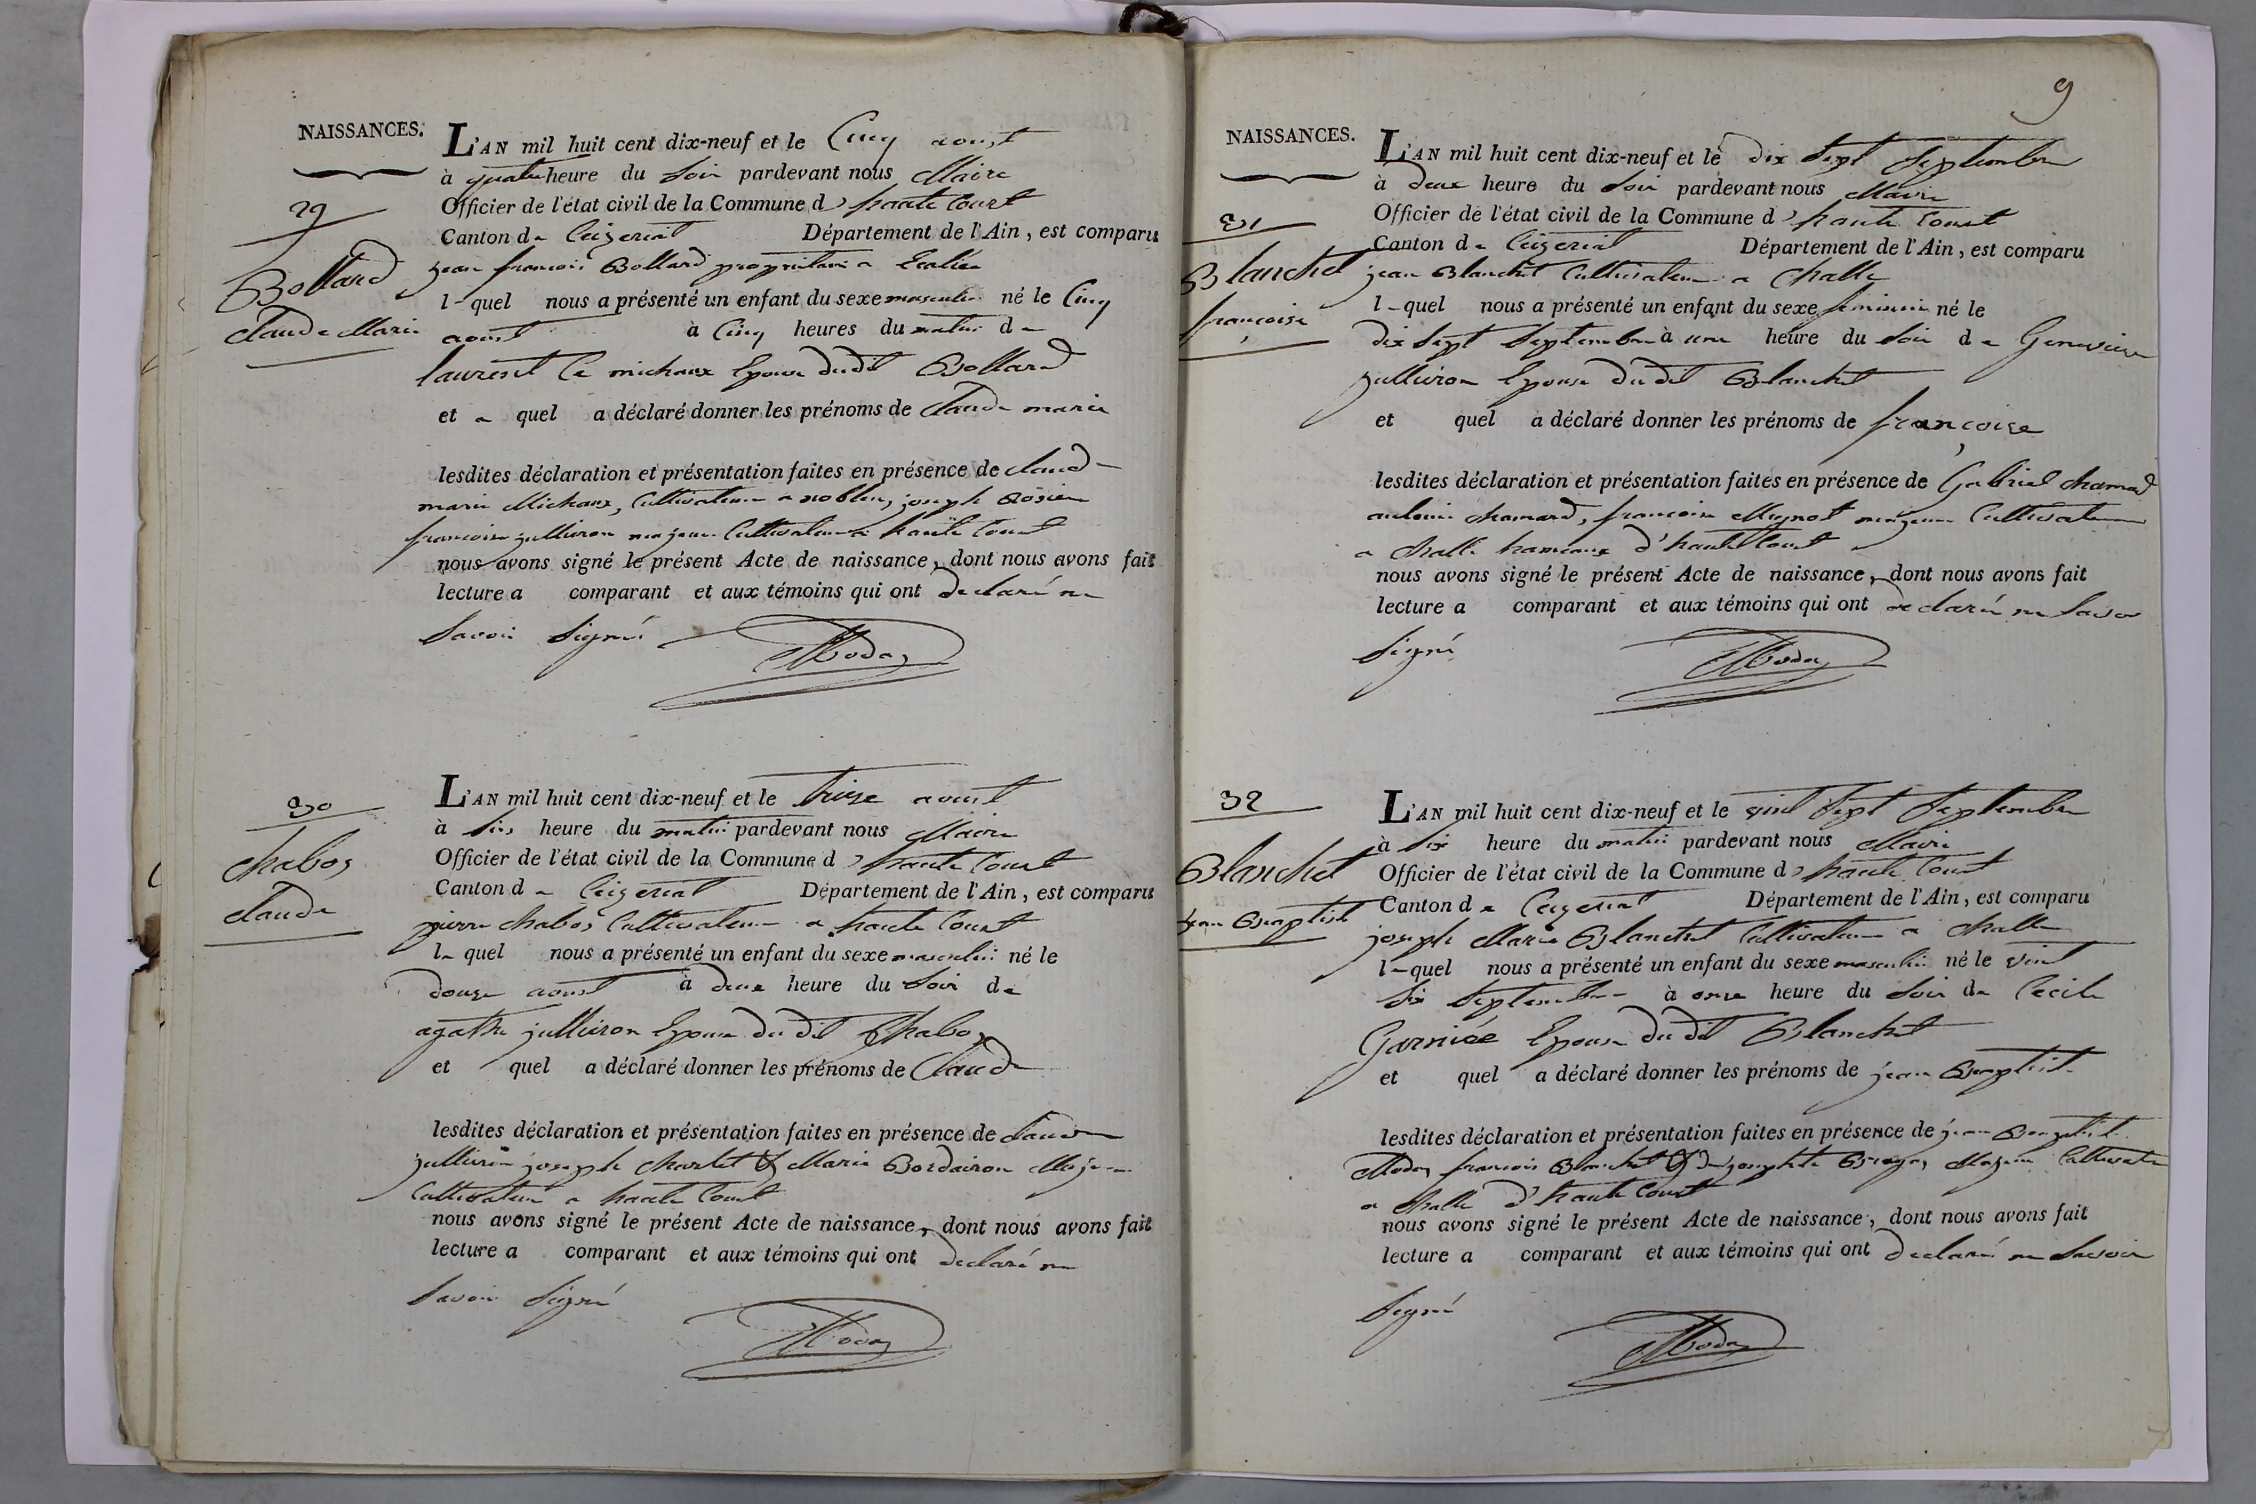 NAISSANCES.
29
Bollard
Claude Marie
L'AN mil huit cent dix-neuf et le Cinq aoust
à quatre heure du Soir pardevant nous Maire
Officier de l'état civil de la Commune d haute Court
Canton de Ceizeriat Département de l'Ain, est comparu
jean francois Bollard propriétaire a
l quel nous a présenté un enfant du sexe masculin né le Cinq
aoust à Cinq heures du matin de
laurent Ce michaux Epouse dudit Bollard
et a quel a déclaré donner les prénoms de Claude marie
lesdites déclaration et présentation faites en présence de claude
marie Michaux, Cultivateur a noblen, joseph Rosier
francois jullieron majeur Cultivateur a haute Court
nous avons signé le présent Acte de naissance, dont nous avons fait
lecture a comparant et aux témoins qui ont declaré ne
Savoir Signé
Moday
30
Chaboz
Claude
L'AN mil huit cent dix-neuf et le treize aoust
à Six heure du matin pardevant nous Maire
Officier de l'état civil de la Commune d haute Court
Canton de Ceizeriat Département de l'Ain, est comparu
pierre Chaboz Cultivateur a haute Court
le quel nous a présenté un enfant du sexe masculin né le
douze aoust à deux heure du Soir de
agathe jullieron Epouse du dit Chaboz
et quel a déclaré donner les prénoms de Claude
lesdites déclaration et présentation faites en présence de Claude
jullieron joseph Charlet & Marie Bordairon Majeur
Cultivateur a haute Court
nous avons signé le présent Acte de naissance, dont nous avons fait
lecture a comparant et aux témoins qui ont declaré ne
Savoir Signé
Moday
9
NAISSANCES.
31
Blanchet
françoise
L'AN mil huit cent dix-neuf et le dix Sept Septembre
à deux heure du Soir pardevant nous Maire
Officier de l'état civil de la Commune d haute Court
Canton de Ceizeriat Département de l'Ain, est comparu
jean Blanchet Cultivateur a Challe
le quel nous a présenté un enfant du sexe feminin né le
dix Sept Septembre à une heure du Soir de Genevieve
jullieron Epouse du dit Blanchet
et quel a déclaré donner les prénoms de françoise
lesdites déclaration et présentation faites en présence de Gabriel chamard
antoine chamard, francoise Mugnot majeur Cultivateur
a Challe hameaux d'haute Court
nous avons signé le présent Acte de naissance, dont nous avons fait
lecture a comparant et aux témoins qui ont declaré ne Savoir
Signé
Moday
32
Blanchet
jean Baptist
L'AN mil huit cent dix-neuf et le vint Sept Septembre
à Six heure du matin pardevant nous Maire
Officier de l'état civil de la Commune d haute Court
Canton de Ceizeriat Département de l'Ain, est comparu
joseph Marie Blanchet Cultivateur a Challe
le quel nous a présenté un enfant du sexe masculin né le vint
Six Septembre à onze heure du Soir de Cecile
Garniée Epouse du dit Blanchet
et quel a déclaré donner les prénoms de jean Baptist
lesdites déclaration et présentation faites en présence de jean Baptist
Moday francois Blanchet & josephte Majeur Cultivateur
a Challe d'haute Court
nous avons signé le présent Acte de naissance, dont nous avons fait
lecture a comparant et aux témoins qui ont declaré ne Savoir
Signé
Moday